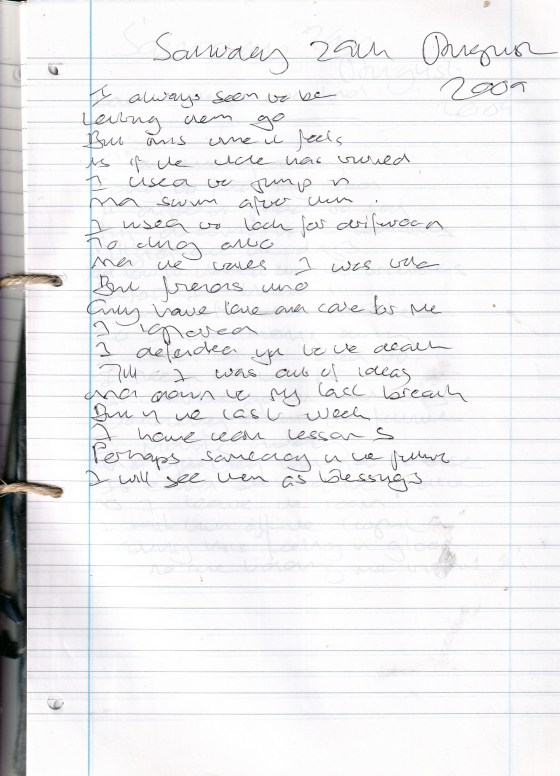 Saturday 29th August
2009
I always seem to be
letting them go
But this time it feels
As if the tide has turned
I used to jump in
And swim after them.
I used to look for driftwood
To cling onto
And the I was told
friends who
Only have love and care for me
I ignored
I defended you to the death
Till I was out of ideas
And down to my last breath
But in the last week
I have learnt lessons
Perhaps someday in the future
I will see them as blessings